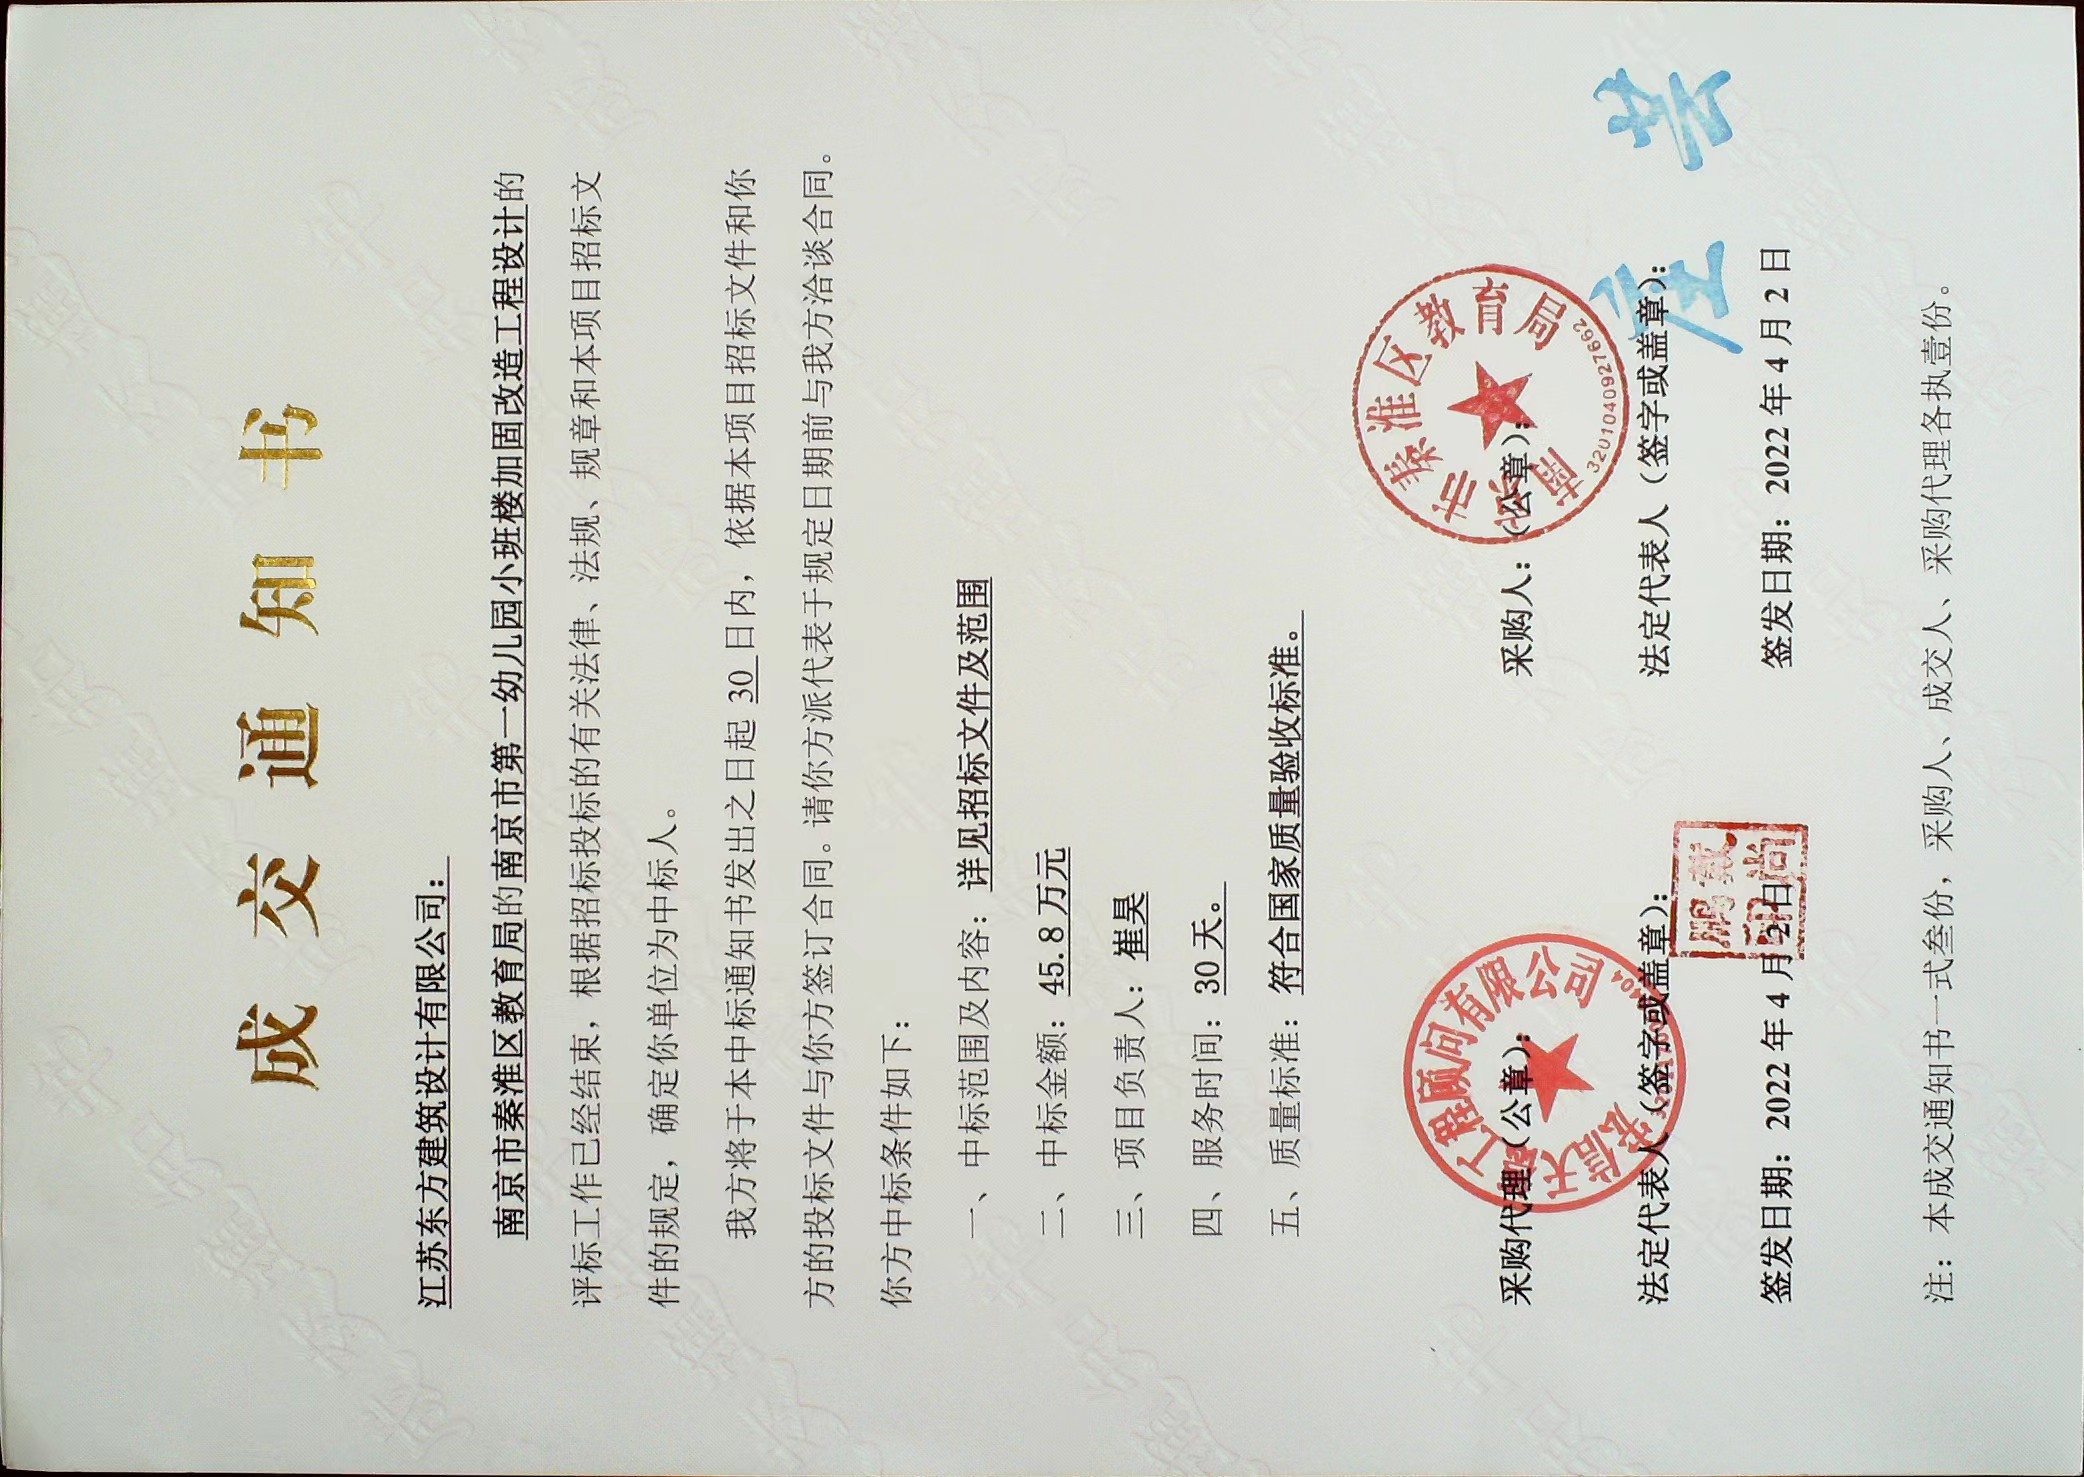 成交通知书
江苏东方建筑设计有限公司：
南京市秦淮区教育局的南京市第一幼儿园小班楼加固改造工程设计的
评标工作已经结束，根据招标投标的有关法律、法规、规章和本项目招标文
件的规定，确定你单位为中标人。
我方将于本中标通知书发出之日起 30 日内，依据本项目招标文件和你
方的投标文件与你方签订合同。请你方派代表于规定日期前与我方洽谈合同。
你方中标条件如下：
一、中标范围及内容：详见招标文件及范围
二、中标金额：45.8 万元
三、项目负责人：崔昊
四、服务时间：30 天。
五、质量标准：符合国家质量验收标准。
采购代理（公章）：
采购人：（公章）：
南京市秦淮区教育局
3201040927662
法定代表人（签字或盖章）：
法定代表人（签字或盖章）：
签发日期：2022 年 4 月 2 日
签发日期：2022 年 4 月 2 日
注：本成交通知书一式叁份，采购人、成交人、采购代理各执壹份。